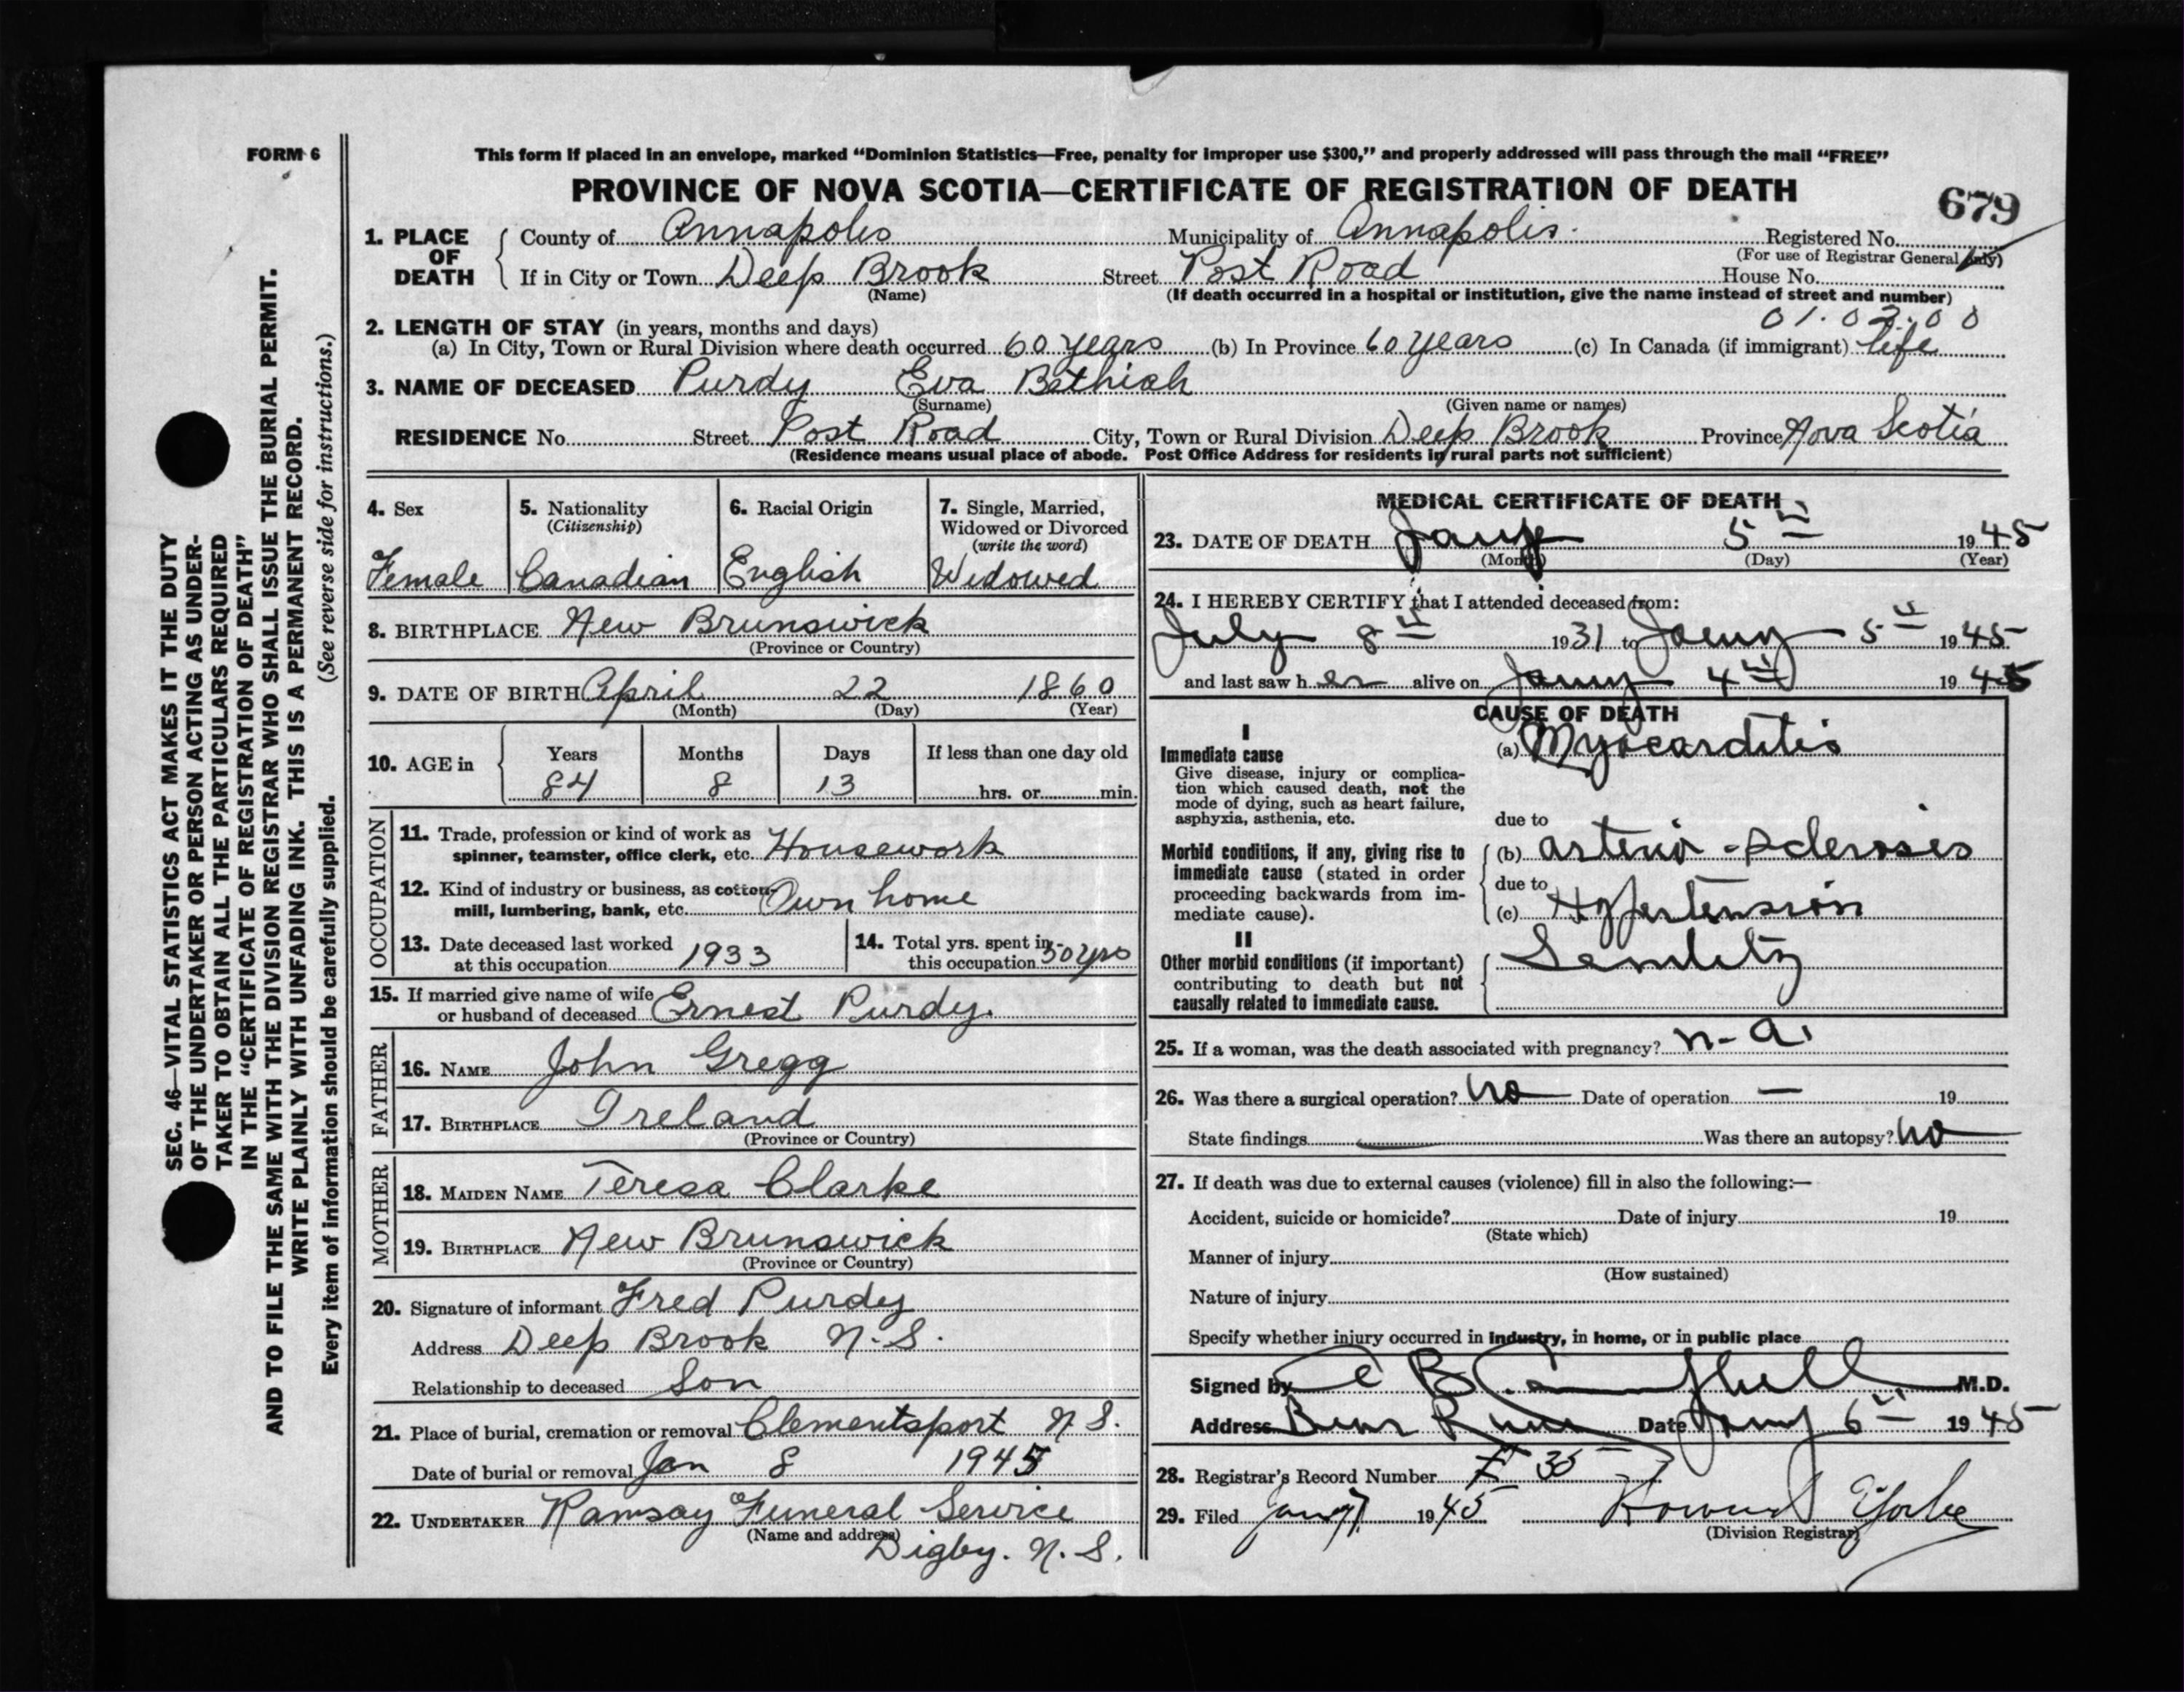 FORM 6
This form if placed in an envelope, marked “Dominion Statistics—Free, penalty for improper use $300,” and properly addressed will pass through the mail “FREE”
PROVINCE OF NOVA SCOTIA—CERTIFICATE OF REGISTRATION OF DEATH
679
1. PLACE OF DEATH
County of Annapolis Municipality of Annapolis. Registered No.
(For use of Registrar General only)
If in City or Town Deep Brook Street Post Road House No.
(Name) (If death occurred in a hospital or institution, give the name instead of street and number)
2. LENGTH OF STAY (in years, months and days) 01.03.00
(a) In City, Town or Rural Division where death occurred 60 years (b) In Province 60 years (c) In Canada (if immigrant) life
3. NAME OF DECEASED Purdy Eva Bethiah
(Surname) (Given name or names)
RESIDENCE No. Street Post Road City, Town or Rural Division Deep Brook Province Nova Scotia
(Residence means usual place of abode. Post Office Address for residents in rural parts not sufficient)
4. Sex
Female
5. Nationality
(Citizenship)
Canadian
6. Racial Origin
English
7. Single, Married,
Widowed or Divorced
(write the word)
Widowed
8. BIRTHPLACE New Brunswick
(Province or Country)
9. DATE OF BIRTH April 22 1860
(Month) (Day) (Year)
10. AGE in
Years Months Days If less than one day old
84 8 13 hrs. or min.
OCCUPATION
11. Trade, profession or kind of work as
spinner, teamster, office clerk, etc. Housework
12. Kind of industry or business, as cotton-
mill, lumbering, bank, etc. Own home
13. Date deceased last worked
at this occupation 1933
14. Total yrs. spent in
this occupation 50 yrs
15. If married give name of wife
or husband of deceased Ernest Purdy.
FATHER
16. NAME John Gregg
17. BIRTHPLACE Ireland
(Province or Country)
MOTHER
18. MAIDEN NAME Teresa Clarke
19. BIRTHPLACE New Brunswick
(Province or Country)
20. Signature of informant Fred Purdy
Address Deep Brook N.S.
Relationship to deceased Son
21. Place of burial, cremation or removal Clementsport N.S.
Date of burial or removal Jan 8 1945
22. UNDERTAKER Ramsay Funeral Service
(Name and address)
Digby. N.S.
MEDICAL CERTIFICATE OF DEATH
23. DATE OF DEATH Jany 5th 1945
(Month) (Day) (Year)
24. I HEREBY CERTIFY that I attended deceased from:
July 8th 1931 to Jany 5th 1945
and last saw her alive on Jany 4th 1945
CAUSE OF DEATH
I
Immediate cause
Give disease, injury or complica-
tion which caused death, not the
mode of dying, such as heart failure,
asphyxia, asthenia, etc.
(a) Myocarditis
due to
Morbid conditions, if any, giving rise to
immediate cause (stated in order
proceeding backwards from im-
mediate cause).
(b) arterio-sclerosis
due to
(c) Hypertension
II
Other morbid conditions (if important)
contributing to death but not
causally related to immediate cause.
Senility
25. If a woman, was the death associated with pregnancy? n-a.
26. Was there a surgical operation? no Date of operation — 19
State findings — Was there an autopsy? no
27. If death was due to external causes (violence) fill in also the following:—
Accident, suicide or homicide? Date of injury 19
(State which)
Manner of injury
(How sustained)
Nature of injury
Specify whether injury occurred in industry, in home, or in public place
Signed by B Campbell M.D.
Address Bear River Date Jany 6th 1945
28. Registrar's Record Number 35
29. Filed Jany 7 1945 Yorke
(Division Registrar)
SEC. 46—VITAL STATISTICS ACT MAKES IT THE DUTY
OF THE UNDERTAKER OR PERSON ACTING AS UNDER-
TAKER TO OBTAIN ALL THE PARTICULARS REQUIRED
IN THE “CERTIFICATE OF REGISTRATION OF DEATH”
AND TO FILE THE SAME WITH THE DIVISION REGISTRAR WHO SHALL ISSUE THE BURIAL PERMIT.
WRITE PLAINLY WITH UNFADING INK. THIS IS A PERMANENT RECORD.
Every item of information should be carefully supplied. (See reverse side for instructions.)